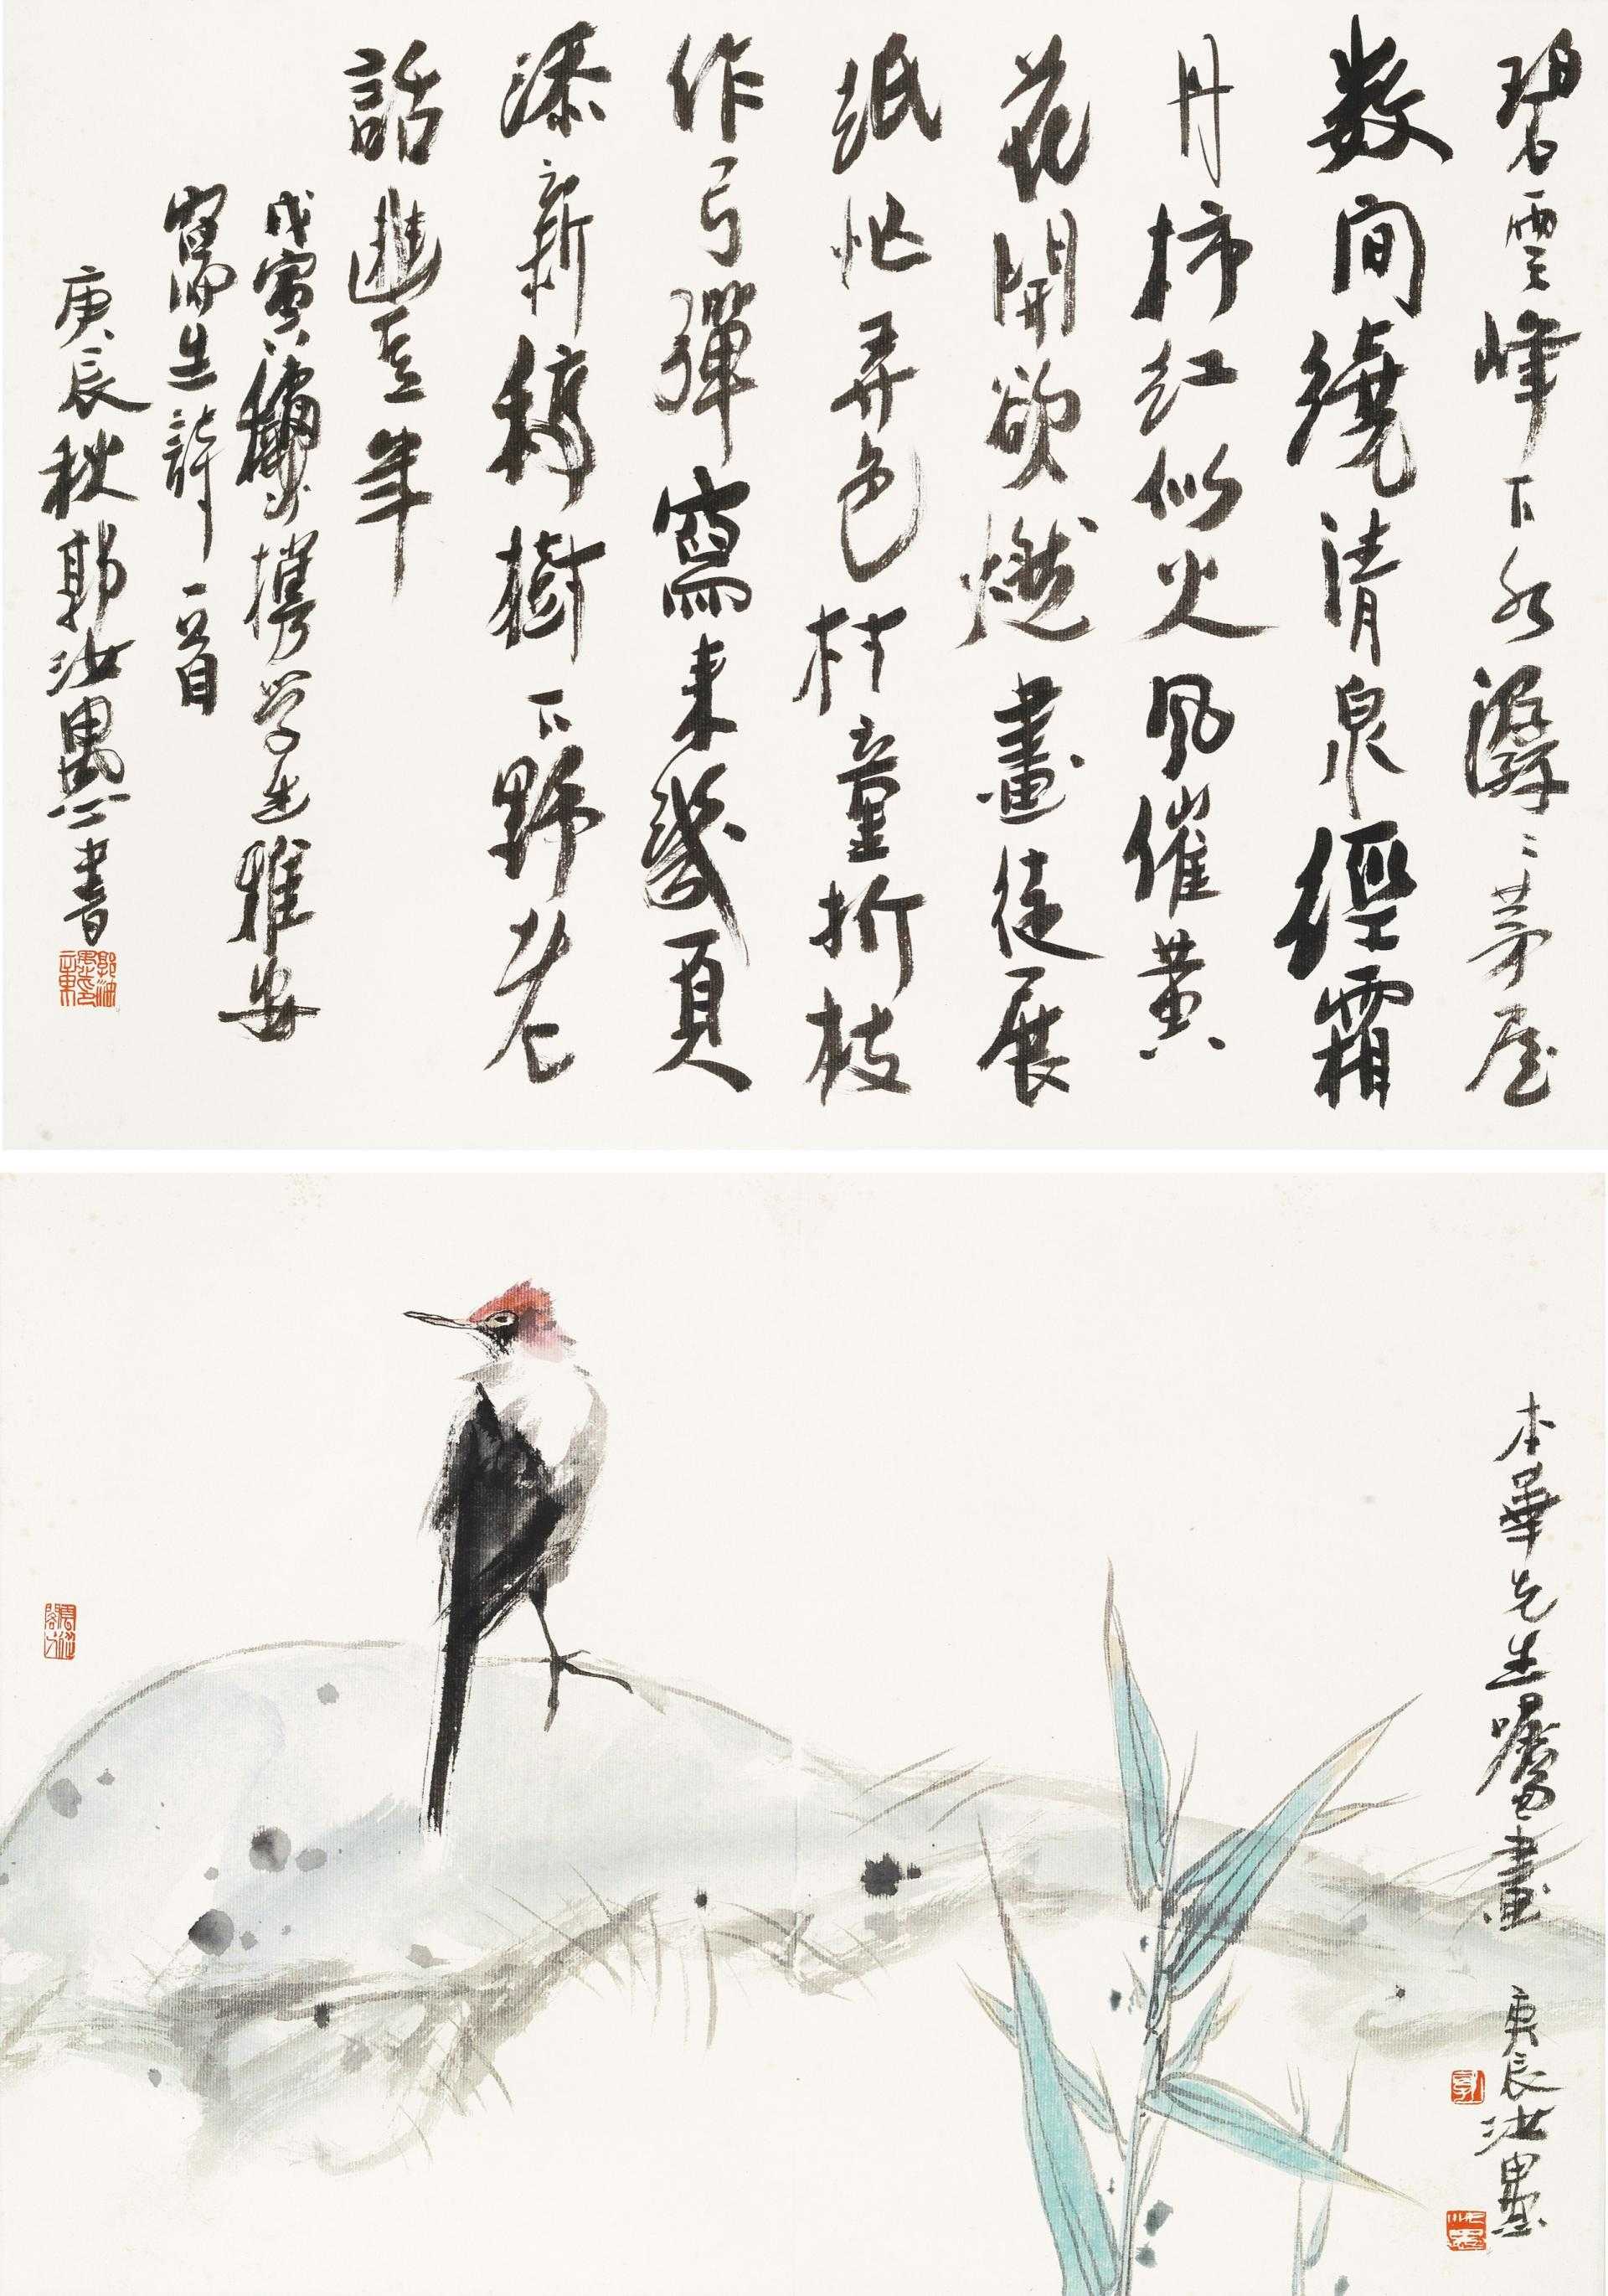 碧雲峰下水潺二茅屋
數間繞清泉經霜
丹柿紅似火風催黃
花開欲燃畫徒展
紙忙弄色村童折枝
作弓彈寫来幾頁
添新稿樹下野老
話豐年
戊寅秋攜学生雅安
寫生詩一首
庚辰秋郭汝愚書
本華先生囑畫
庚辰汝愚